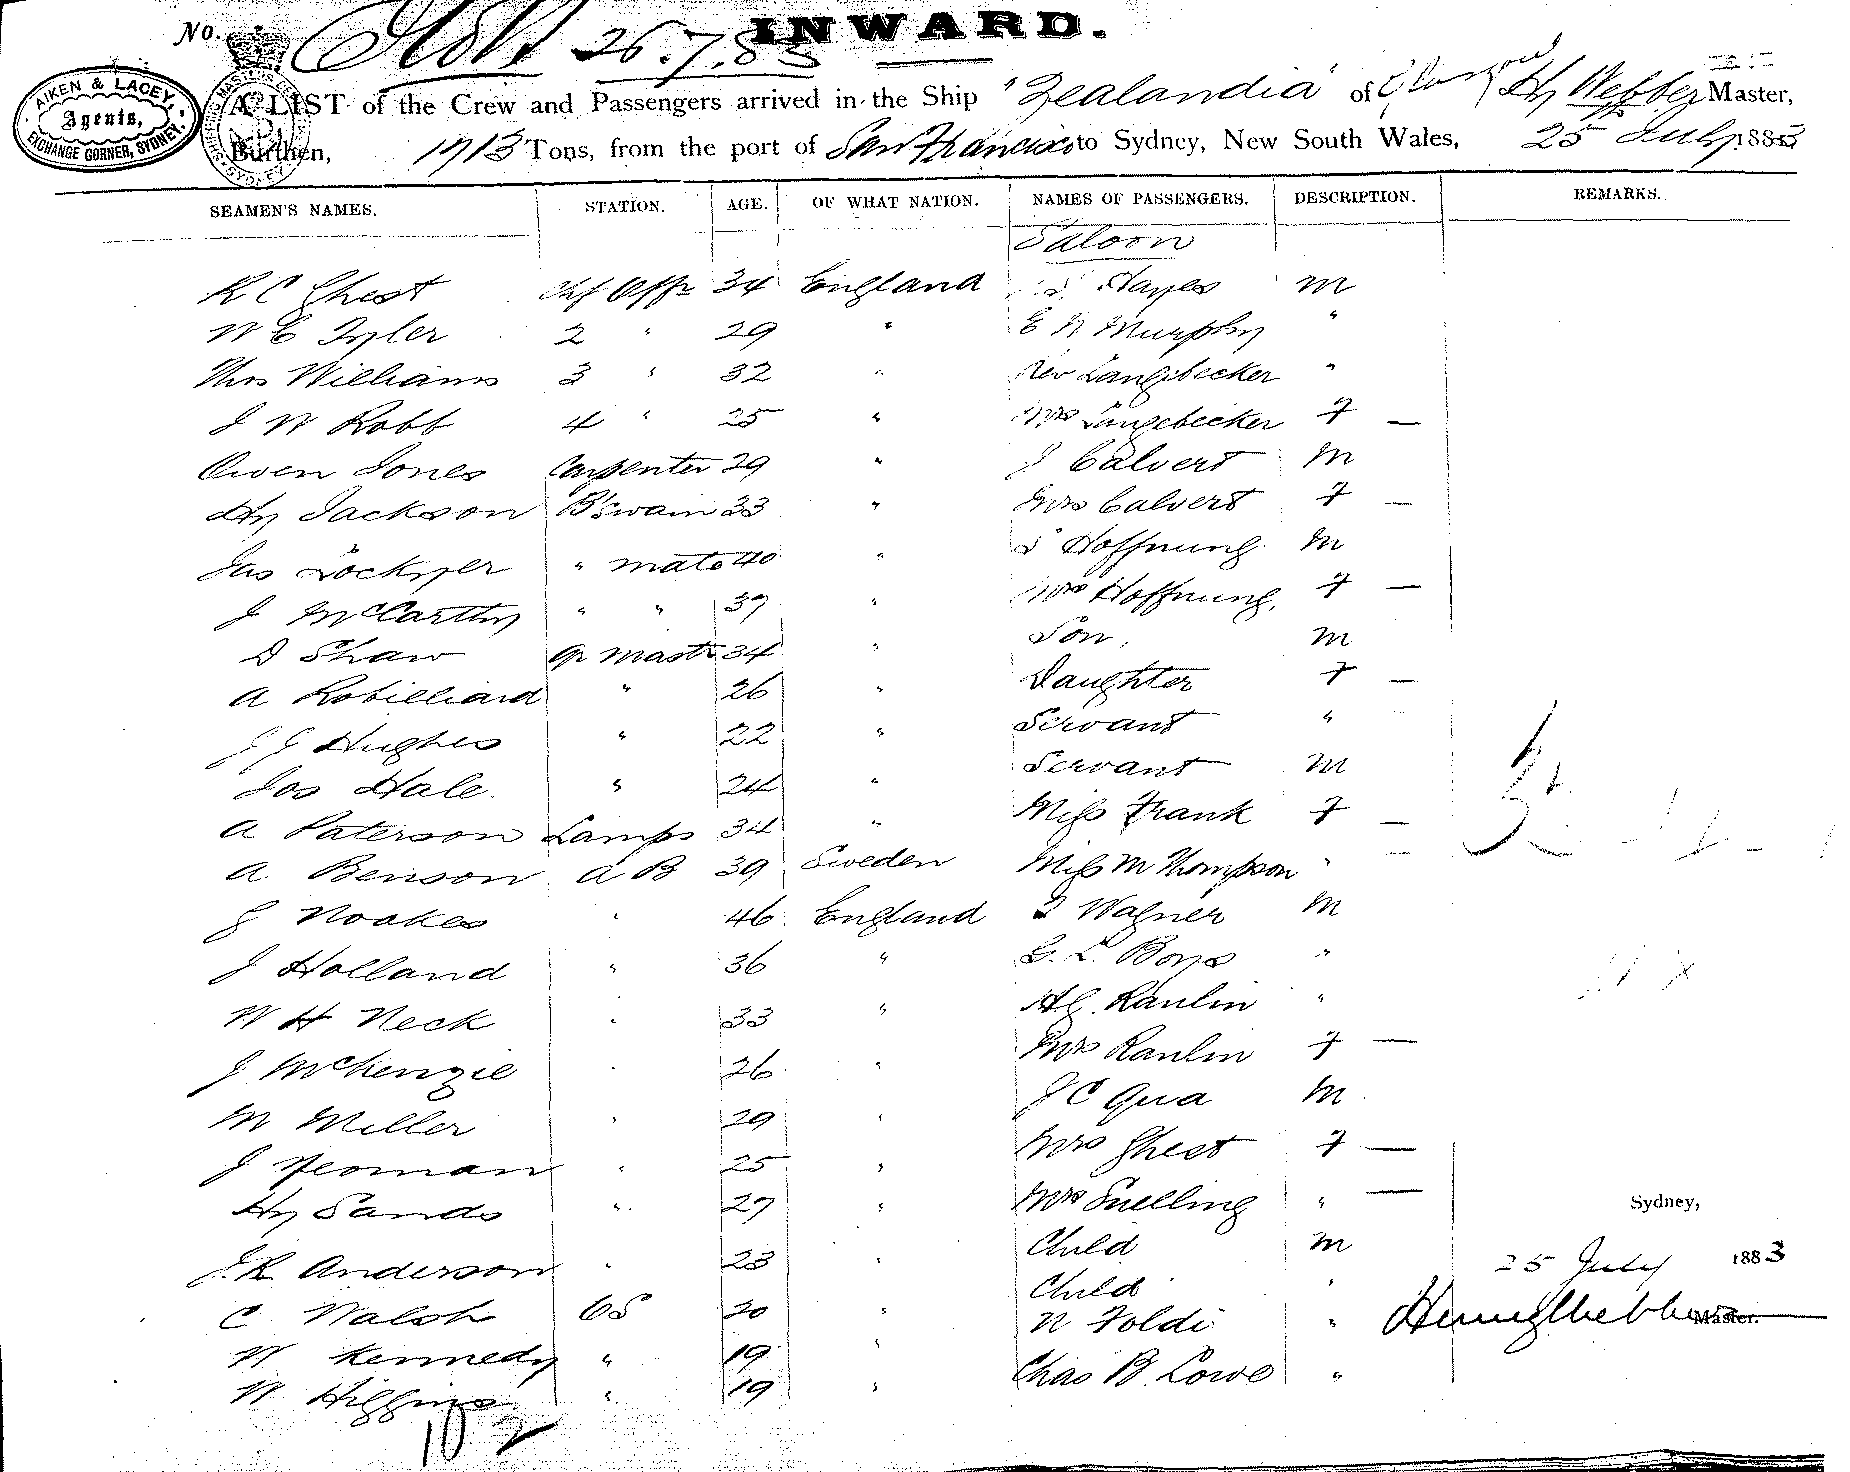 No. INWARD.
26.7.83
AIKEN & LACEY,
Agents,
EXCHANGE CORNER, SYDNEY.
A LIST of the Crew and Passengers arrived in the Ship "Zealandia" of Hy Webber Master,
Burthen, 1713 Tons, from the port of San Francisco to Sydney, New South Wales, 25 July 1883
SEAMEN'S NAMES. STATION. AGE. OF WHAT NATION. NAMES OF PASSENGERS. DESCRIPTION. REMARKS.
Saloon
R C Ghest Chf Offr 34 England Hayes M
W C Tyler 2 " 29 " E N Murphy "
Thos Williams 3 " 32 " Rev Langebecker "
J W Robb 4 " 25 " Mrs Langebecker F —
Owen Jones Carpenter 29 " J Calvert M
Hy Jackson B'swain 33 " Mrs Calvert F —
Jas Lockyer " mate 40 " S Hoffnung M
J McCarthy " " 37 " Mrs Hoffnung F —
D Shaw Qr Mastr 34 " Son M
A Robilliard " 26 " Daughter F —
J J Hughes " 22 " Servant "
Jos Hale " 24 " Servant M
A Paterson Lamps 34 " Miss Frank F —
A Benson A B 39 Sweden Miss M Thompson " —
J Noakes " 46 England Wagner M
J Holland " 36 " G. L. Boys "
W H Neck " 33 " Ranlin "
J McKenzie " 26 " Mrs Ranlin F —
M Miller " 29 " J C Qua M
J Yeoman " 25 " Mrs Ghest F —
Hy Sands " 27 " Mrs Snelling " —
J.R. Anderson " 23 " Child M
C Walsh OS 20 " Child "
W Kennedy " 19 " N Foldi "
W Higgins " 19 " Chas B. Lowe "
Sydney,
25 July 1883
Henry Webber Master.
102